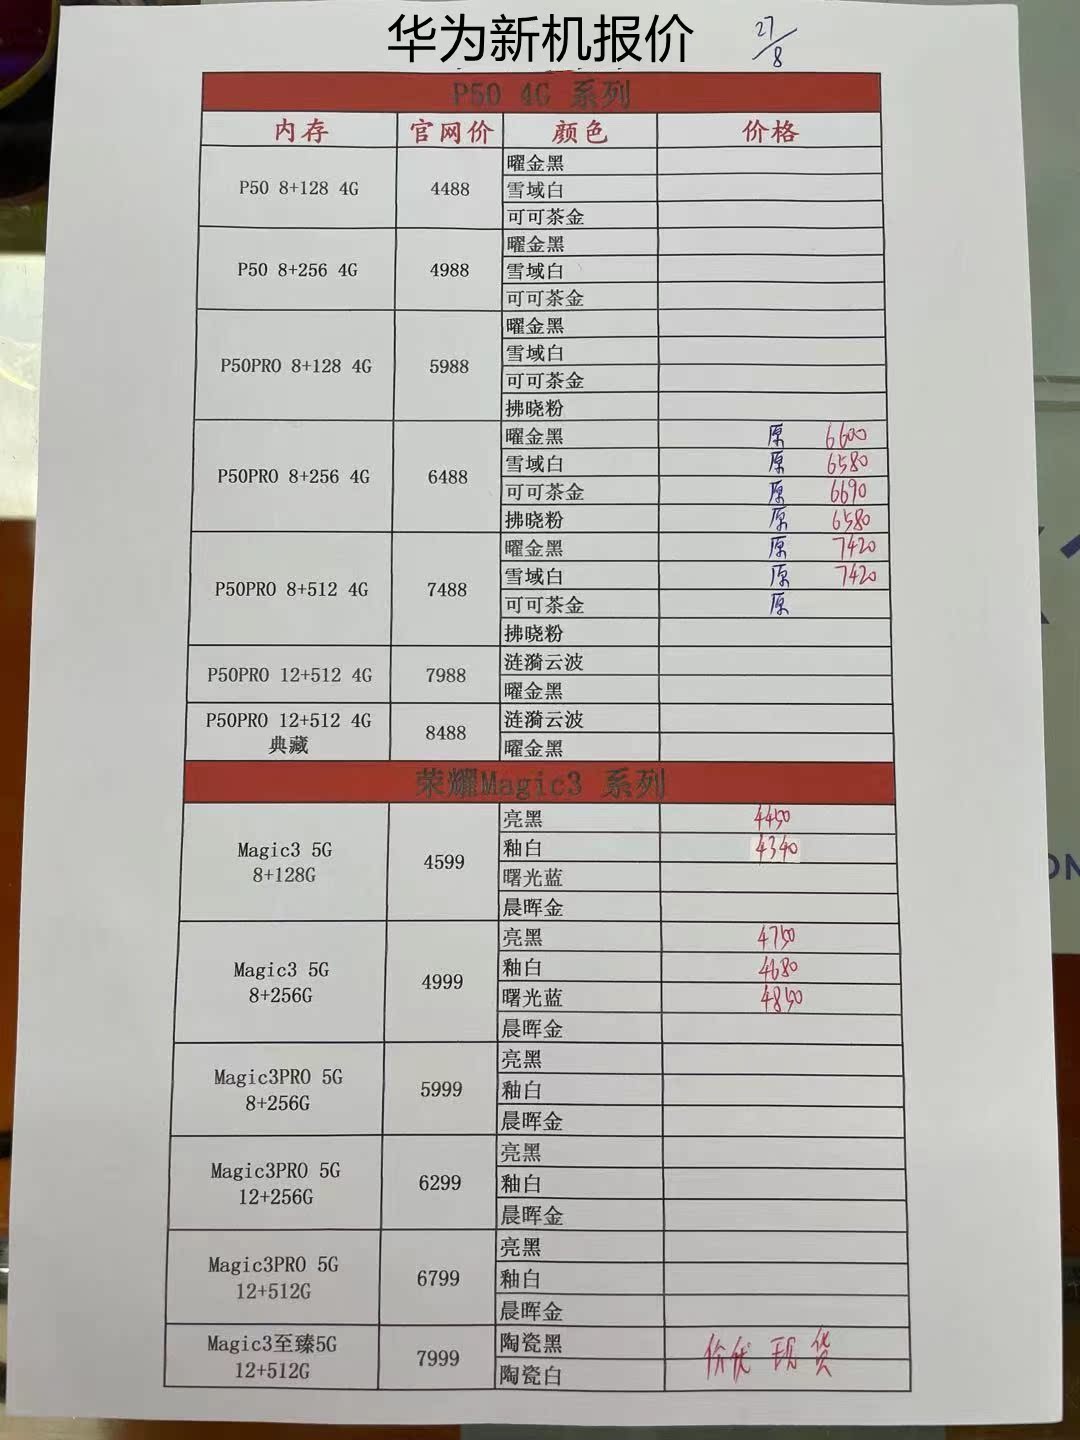 华为新机报价 27/8
P50 4G 系列
内存 官网价 颜色 价格
P50 8+128 4G 4488 曜金黑
雪域白
可可茶金
P50 8+256 4G 4988 曜金黑
雪域白
可可茶金
P50PRO 8+128 4G 5988 曜金黑
雪域白
可可茶金
拂晓粉
P50PRO 8+256 4G 6488 曜金黑 原 6600
雪域白 原 6580
可可茶金 原 6690
拂晓粉 原 6580
P50PRO 8+512 4G 7488 曜金黑 原 7420
雪域白 原 7420
可可茶金 原
拂晓粉
P50PRO 12+512 4G 7988 涟漪云波
曜金黑
P50PRO 12+512 4G 典藏 8488 涟漪云波
曜金黑
荣耀Magic3 系列
Magic3 5G 8+128G 4599 亮黑 4450
釉白 4340
曙光蓝
晨晖金
Magic3 5G 8+256G 4999 亮黑 4750
釉白 4680
曙光蓝 4850
晨晖金
Magic3PRO 5G 8+256G 5999 亮黑
釉白
晨晖金
Magic3PRO 5G 12+256G 6299 亮黑
釉白
晨晖金
Magic3PRO 5G 12+512G 6799 亮黑
釉白
晨晖金
Magic3至臻5G 12+512G 7999 陶瓷黑 价优 现货
陶瓷白